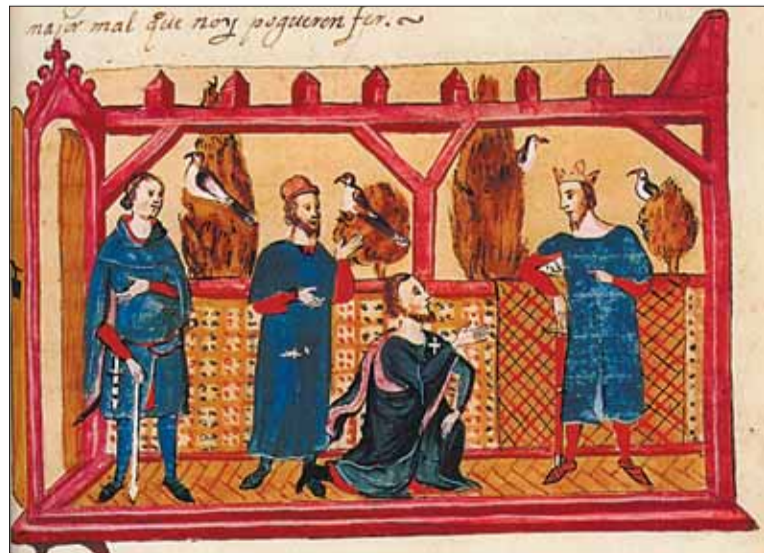 major mal que noy pogueren fer.~